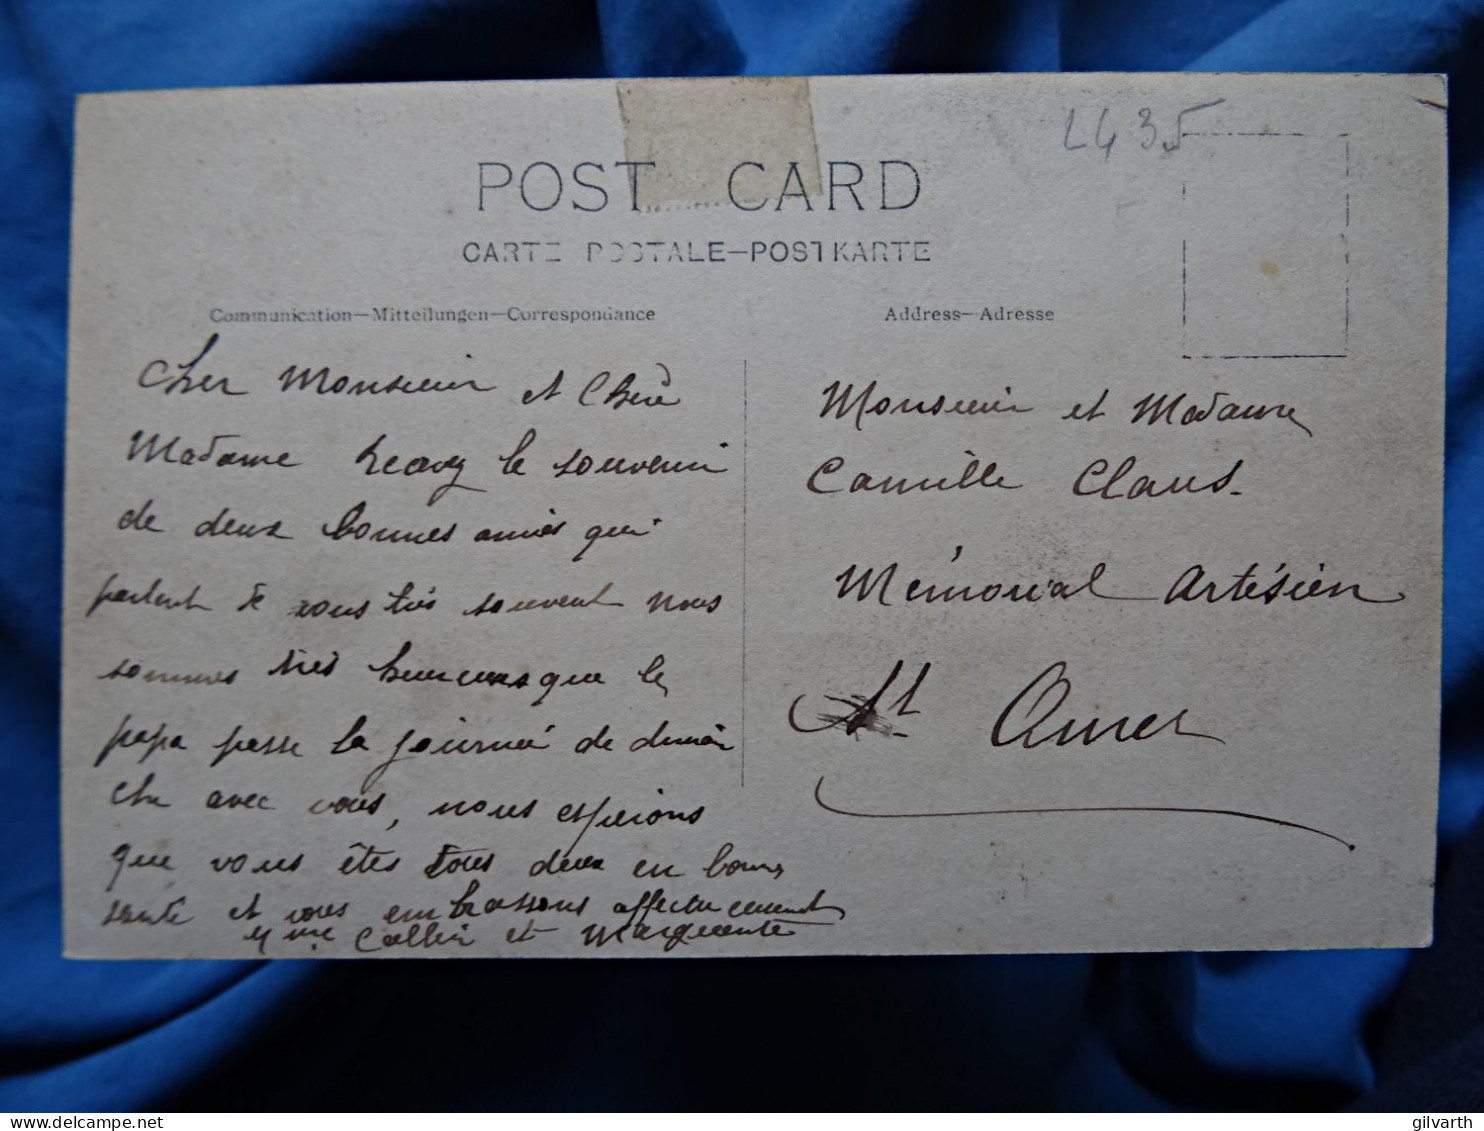 L435
POST CARD
CARTE POSTALE—POSTKARTE
Communication—Mitteilungen—Correspondance
Address—Adresse
Cher Monsieur et Chère
Madame recevez le souvenir
de deux bonnes amies qui
parlent de vous très souvent nous
sommes très heureuses que le
papa passe la journée de diman
che avec vous, nous espérons
que vous êtes tous deux en bonne
santé et vous embrassons affectueusement
Mme et Marguerite
Monsieur et Madame
Camille Claus.
Mémorial Artésien
St Omer
gilvarth